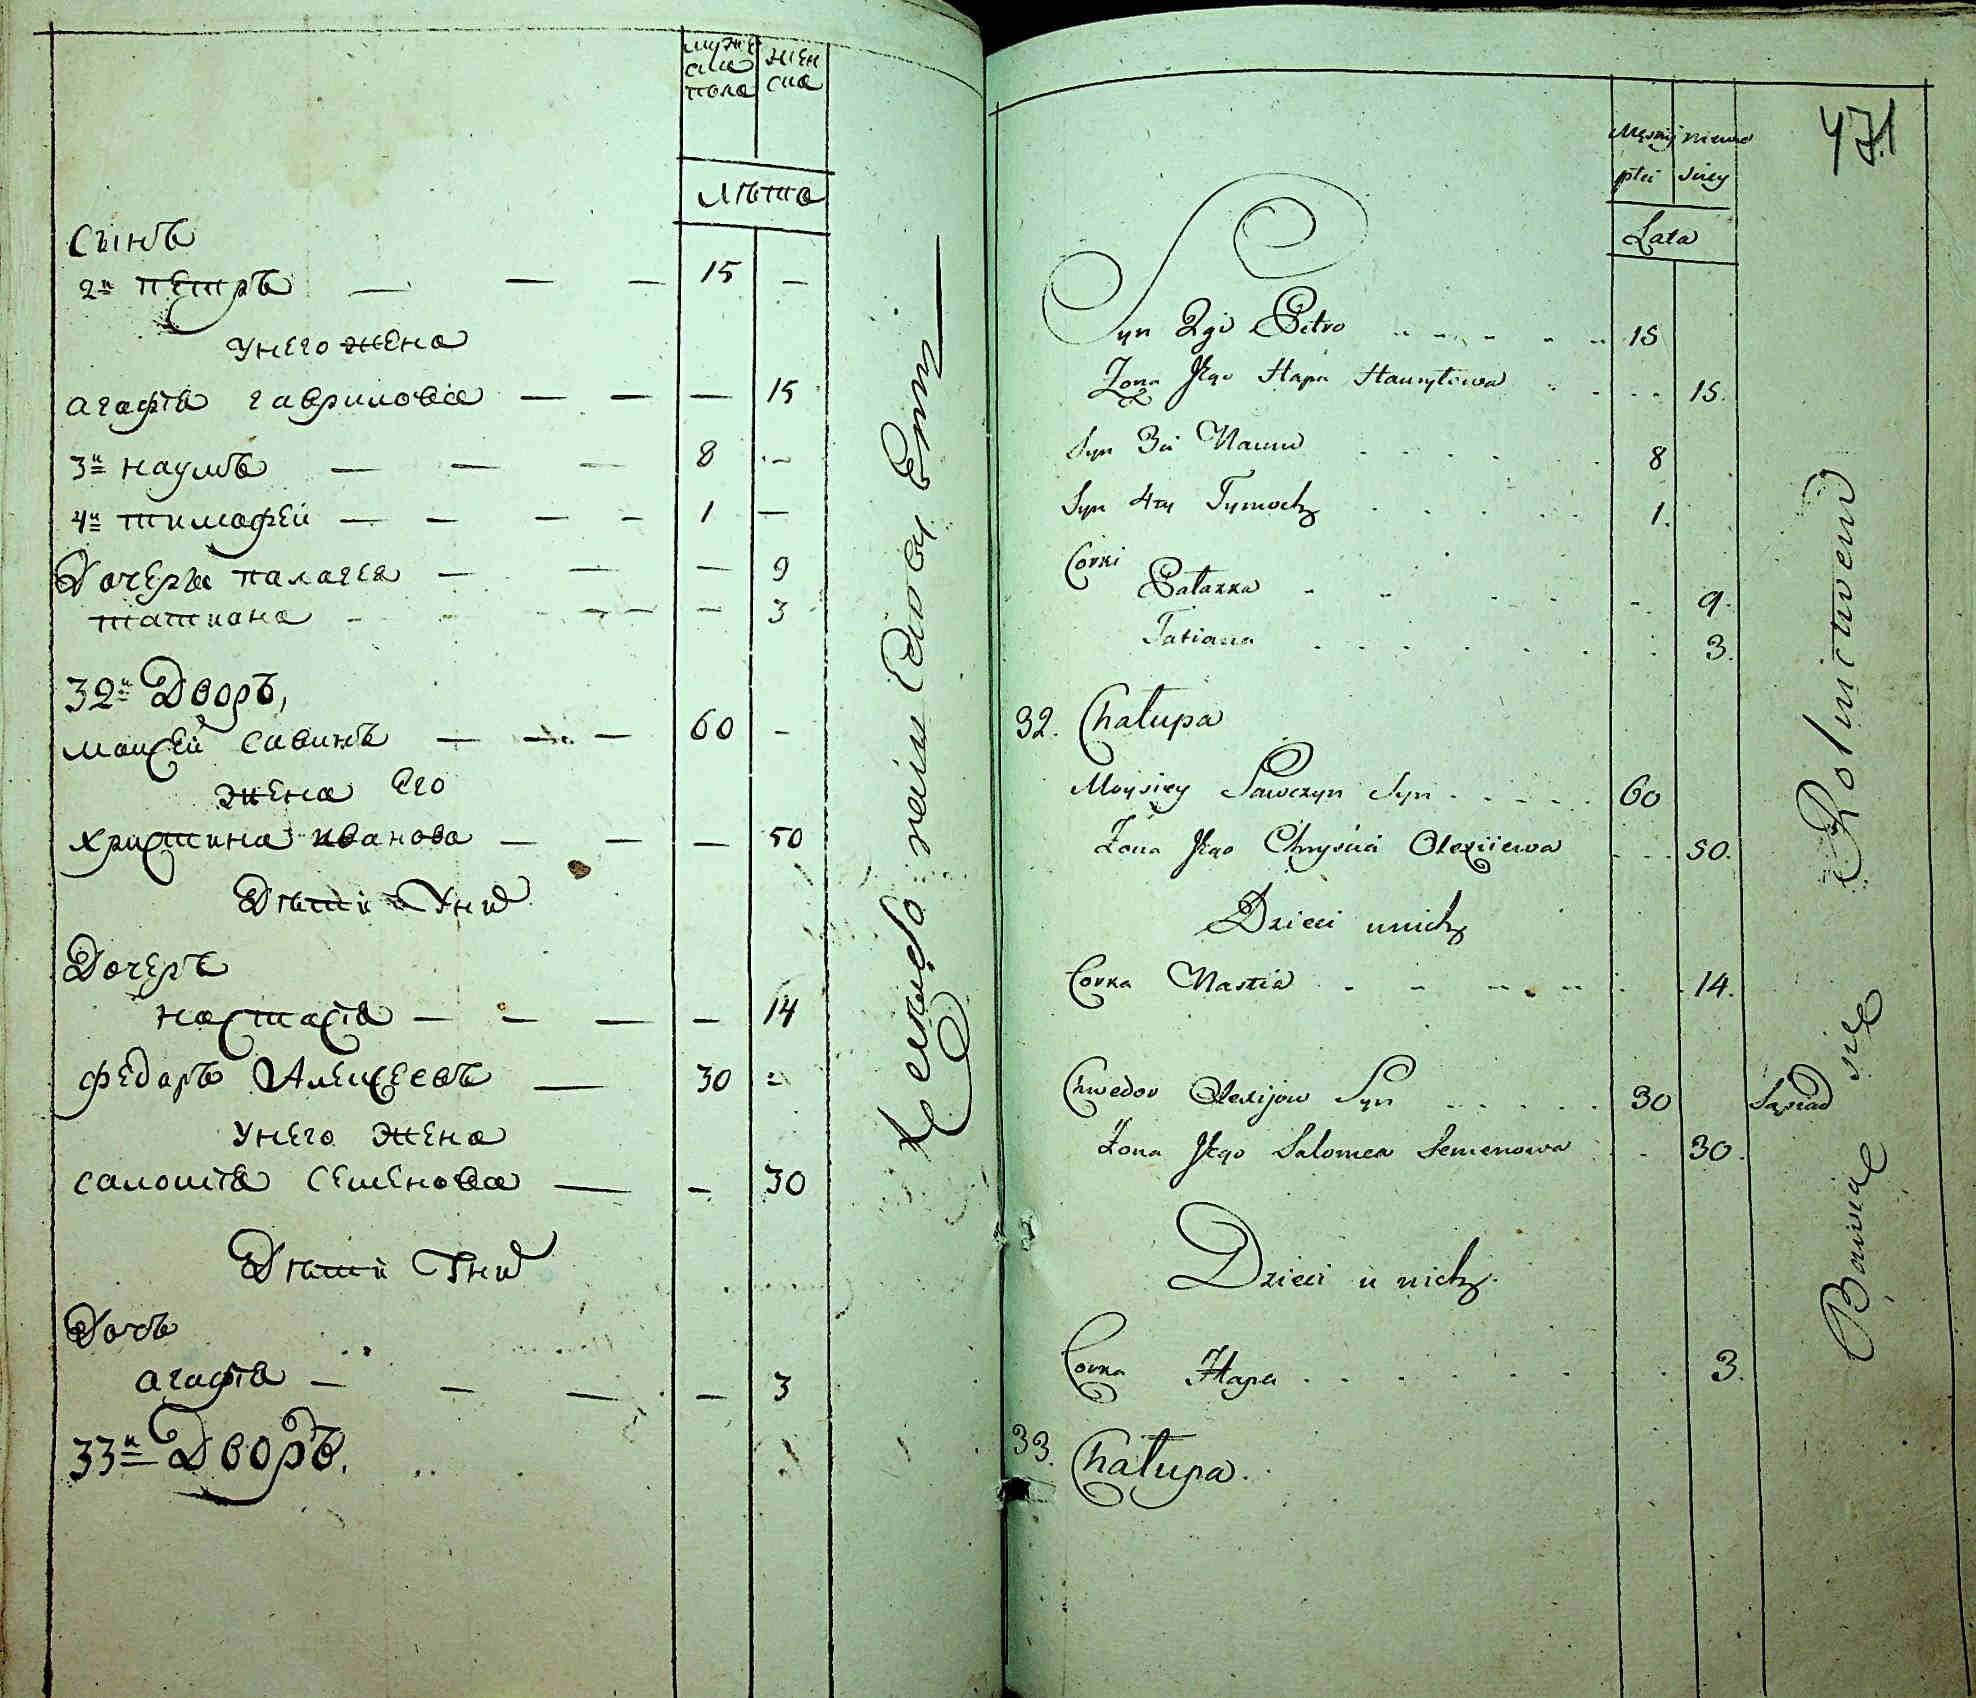 мужеска пола
женска
лѣта
Сынъ
2й петръ — — — 15 —
унего жена
агафѣя гаврилова — — — 15
3й наумъ — — — 8 —
4й тимофей — — — — 1 —
Дочери палагея — — — 9
татиана — — — — 3
32й Дворъ,
моисей савинъ — — — 60 —
жена его
христина иванова — — — 50
Дѣти у них
Дочерь
настасѣя — — — — 14
федоръ Алексеевъ — 30 —
унего жена
саломѣя семенова — — 30
Дѣти у них
Дочь
агафѣя — — — — 3
33й Дворъ.
471
Męzkiy płci
niewiesciey
Lata
Syn 2gi Petro 15
Żona Jego Hapa Hauryłowa 15.
Syn 3ci Naum 8
Syn 4ty Tymoch 1.
Corki
Pałaxka 9.
Tatiana 3.
32. Chałupa
Moysiey Sawczyn Syn 60
Żona Jego Chrysția Olexiiewa 50.
Dzieci unich
Corka Nastia 14.
Chwedor Olexijow Syn 30 Sąsiad
Żona Jego Salomea Semenowa 30.
Dzieci u nich.
Corka Hapa 3.
33. Chałupa.
Bawią się Rolnictwem